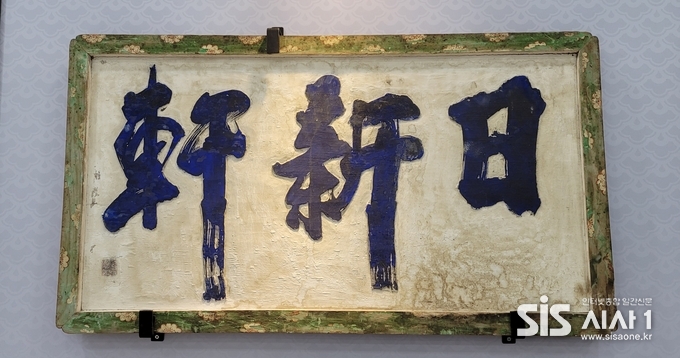 日新軒
인터넷종합 일간신문
SIS 시사1
www.sisaone.kr